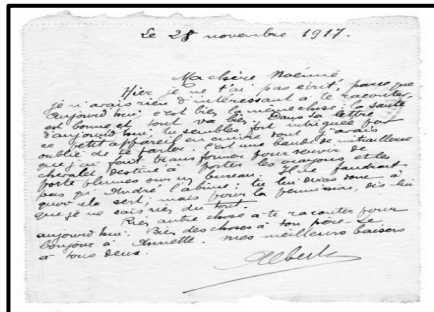 Le 28 novembre 1917.
Ma chère Noémie
Hier je ne t'ai pas écrit, parce que
je n'avais rien d'intéressant à te raconter.
Aujourd'hui c'est bien la même chose; la santé
est bonne et tout va bien. Dans ta lettre
d'aujourd'hui, tu sembles fort intriguée par
ce petit appareil en cuivre dont j'avais
oublié de te parler. C'est une bande de mitrailleuse
que j'ai fait transformer pour servir de
chevalet destiné à porter les crayons et les
porte plumes sur un bureau. Il ne faudrait
pas qu'André l'abîme; tu lui diras donc à
quoi il sert, mais pour la fournisseur, dis lui
que je ne sais rien du tout.
Rien autre chose à te raconter pour
aujourd'hui. Bien des choses à ton père. Le
bonjour à Annette. Mes meilleurs baisers
à tous deux.
Albert